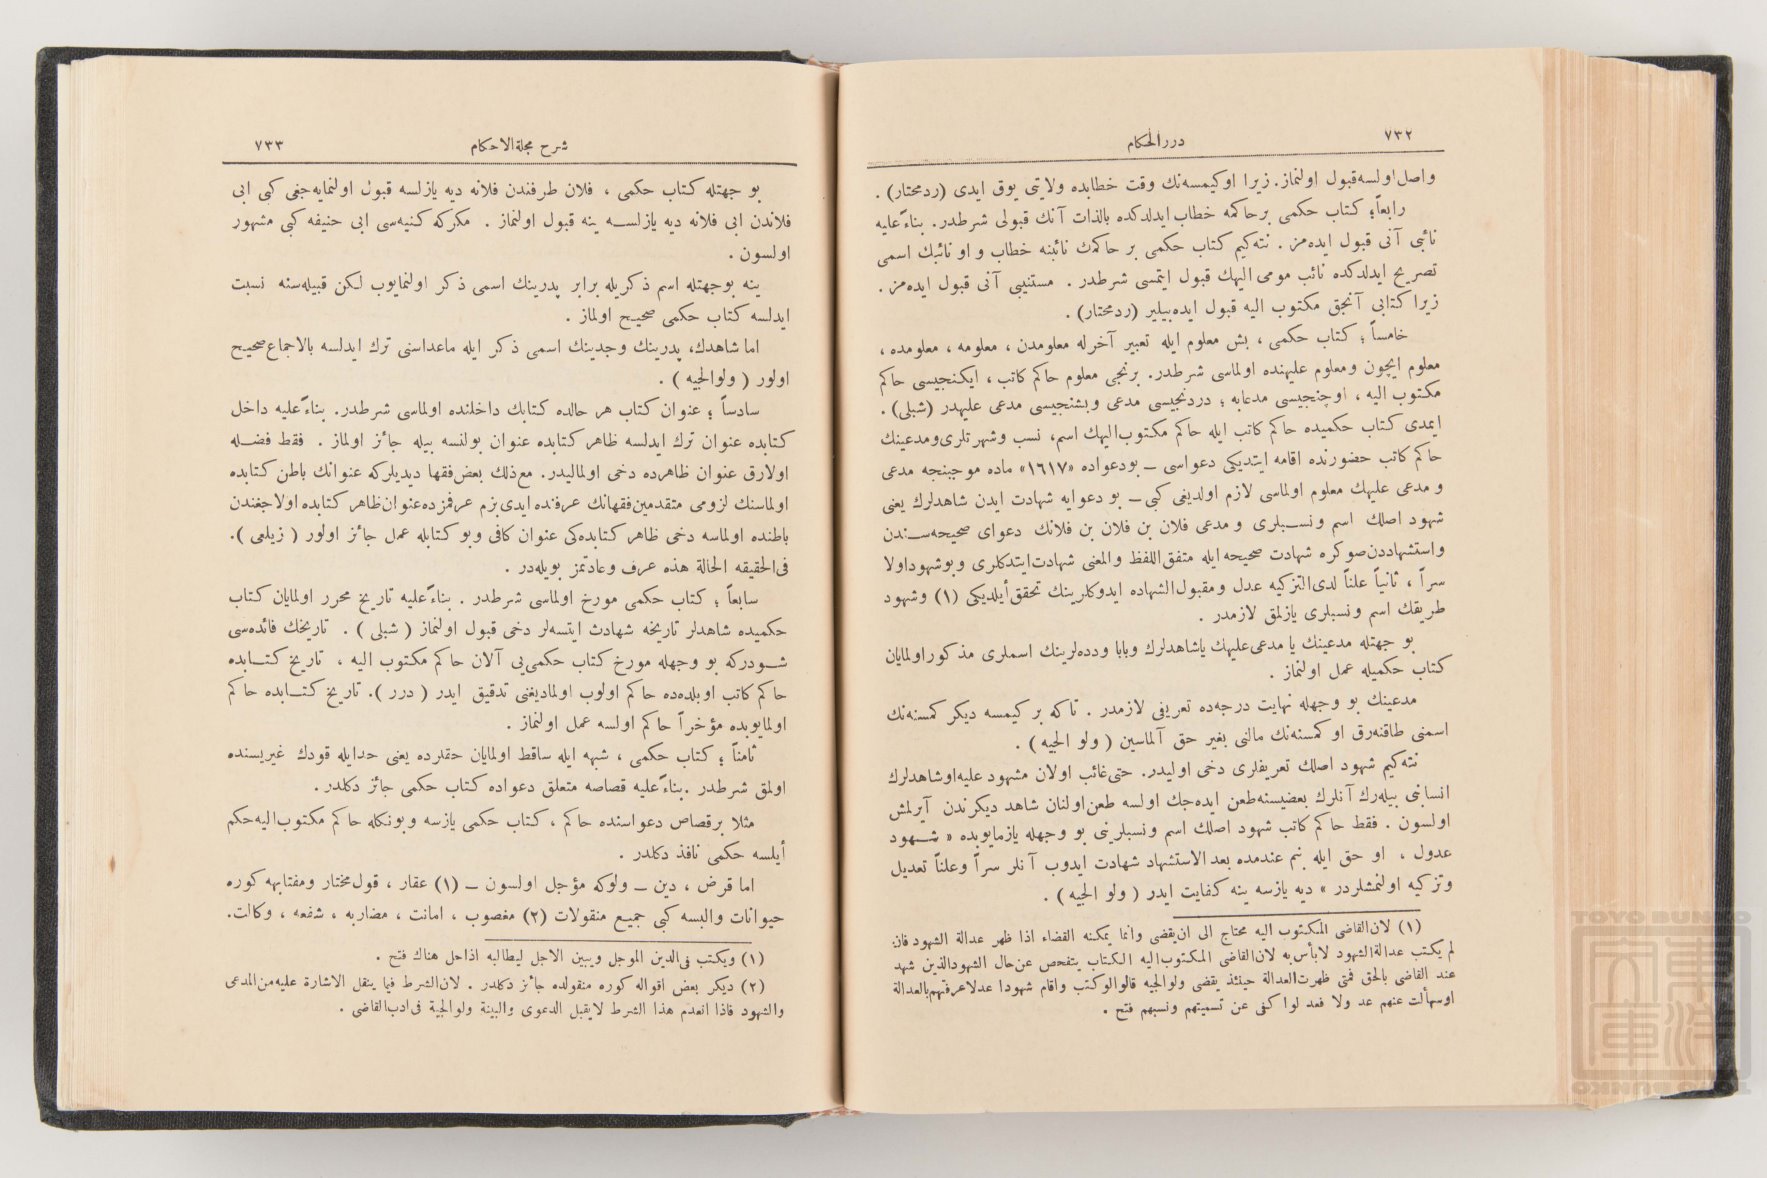 ٧٣٢
درر الحكام
واصل اولسه قبول اولنماز. زيرا او كيمسه نك وقت خطابده ولايتى يوق ايدى (ردمحتار) .
رابعاً؛ كتاب حكمى بر حاكمه خطاب ايدلدكده بالذات آنك قبولى شرطدر. بناءً عليه
نائبى آنى قبول ايده مز . نته كيم كتاب حكمى بر حاكمك نائبنه خطاب و او نائبك اسمى
تصريح ايدلدكده نائب مومى اليهك قبول ايتمسى شرطدر . مستنيبى آنى قبول ايده مز .
زيرا كتابى آنجق مكتوب اليه قبول ايده بيلير (ردمحتار) .
خامساً ؛ كتاب حكمى ، بش معلوم ايله تعبير آخرله معلومدن ، معلومه ، معلومده ،
معلوم ايچون ومعلوم عليهنده اولماسى شرطدر. برنجى معلوم حاكم كاتب ، ايكنجيسى حاكم
مكتوب اليه ، اوچنجيسى مدعابه ؛ دردنجيسى مدعى وبشنجيسى مدعى عليهدر (شبلى) .
ايمدى كتاب حكميده حاكم كاتب ايله حاكم مكتوب اليهك اسم، نسب وشهرتلرى ومدعينك
حاكم كاتب حضورنده اقامه ايتديكى دعواسى ــ بودعواده «١٦١٧» ماده موجبنجه مدعى
و مدعى عليهك معلوم اولماسى لازم اولديغى كبى ــ بو دعوايه شهادت ايدن شاهدلرك يعنى
شهود اصلك اسم ونسبلرى و مدعى فلان بن فلان بن فلانك دعواى صحيحه سندن
واستشهاددن صوكره شهادت صحيحه ايله متفق اللفظ والمعنى شهادت ايتدكلرى وبوشهود اولا
سراً ، ثانياً علناً لدى التزكيه عدل ومقبول الشهاده ايدوكلرينك تحقق أيلديكى (١) وشهود
طريقك اسم ونسبلرى يازلمق لازمدر .
بو جهتله مدعينك يا مدعى عليهك ياشاهدلرك وبابا ودده لرينك اسملرى مذكور اولمايان
كتاب حكميله عمل اولنماز .
مدعينك بو وجهله نهايت درجه ده تعريفى لازمدر . تاكه بر كيمسه ديكر كمسنه نك
اسمنى طاقنه رق او كمسنه نك مالنى بغير حق آلماسين ( ولو الجيه ) .
نته كيم شهود اصلك تعريفلرى دخى اوليدر. حتى غائب اولان مشهود عليه اوشاهدلرك
انسابنى بيله رك آنلرك بعضيسنه طعن ايده جك اولسه طعن اولنان شاهد ديكرندن آيرلمش
اولسون . فقط حاكم كاتب شهود اصلك اسم ونسبلرينى بو وجهله يازمايوبده « شهود
عدول ، او حق ايله بنم عندمده بعد الاستشهاد شهادت ايدوب آنلر سراً وعلناً تعديل
وتزكيه اولنمشلردر » ديه يازسه ينه كفايت ايدر ( ولو الجيه ) .
(١) لان القاضى المكتوب اليه محتاج الى ان يقضى وانما يمكنه القضاء اذا ظهر عدالة الشهود فان
لم يكتب عدالة الشهود لابأس به لان القاضى المكتوب اليه الكتاب يتفحص عن حال الشهود الذين شهد
عند القاضى بالحق فمتى ظهرت العدالة حينئذ يقضى ولوالجيه قالوا لوكتب واقام شهودا عدلا عرفتهم بالعدالة
اوسألت عنهم عدلوا كفى عن تسميتهم ونسبهم فتح .
شرح مجلة الاحكام
٧٣٣
بو جهتله كتاب حكمى ، فلان طرفندن فلانه ديه يازلسه قبول اولنمايه جغى كبى ابى
فلاندن ابى فلانه ديه يازلسه ينه قبول اولنماز . مكركه كنيه سى ابى حنيفه كبى مشهور
اولسون .
ينه بوجهتله اسم ذكريله برابر پدرينك اسمى ذكر اولنمايوب لكن قبيله سنه نسبت
ايدلسه كتاب حكمى صحيح اولماز .
اما شاهدك، پدرينك وجدينك اسمى ذكر ايله ماعداسنى ترك ايدلسه بالاجماع صحيح
اولور ( ولوالجيه ) .
سادساً ؛ عنوان كتاب هر حالده كتابك داخلنده اولماسى شرطدر. بناءً عليه داخل
كتابده عنوان ترك ايدلسه ظاهر كتابده عنوان بولنسه بيله جائز اولماز . فقط فضله
اولارق عنوان ظاهرده دخى اولماليدر. مع ذلك بعض فقها ديديلركه عنوانك باطن كتابده
اولماسنك لزومى متقدمين فقهانك عرفنده ايدى بزم عرفمزده عنوان ظاهر كتابده اولاجغندن
باطنده اولماسه دخى ظاهر كتابده كى عنوان كافى وبو كتابله عمل جائز اولور ( زيلعى ).
فى الحقيقه الحالة هذه عرف وعادتمز بويله در .
سابعاً ؛ كتاب حكمى مورخ اولماسى شرطدر . بناءً عليه تاريخ محرر اولمايان كتاب
حكميده شاهدلر تاريخه شهادت ايتسه لر دخى قبول اولنماز ( شبلى ) . تاريخك فائده سى
شودركه بو وجهله مورخ كتاب حكمى يى آلان حاكم مكتوب اليه ، تاريخ كتابده
حاكم كاتب اوبلده ده حاكم اولوب اولماديغنى تدقيق ايدر ( درر ). تاريخ كتابده حاكم
اولمايوبده مؤخراً حاكم اولسه عمل اولنماز .
ثامناً ؛ كتاب حكمى ، شبهه ايله ساقط اولمايان حقلرده يعنى حدايله قودك غيريسنده
اولمق شرطدر . بناءً عليه قصاصه متعلق دعواده كتاب حكمى جائز دكلدر.
مثلا برقصاص دعواسنده حاكم ، كتاب حكمى يازسه وبونكله حاكم مكتوب اليه حكم
أيلسه حكمى نافذ دكلدر .
اما قرض ، دين ــ ولوكه مؤجل اولسون ــ (١) عقار ، قول مختار ومفتابهه كوره
حيوانات والبسه كبى جميع منقولات (٢) مغصوب ، امانت ، مضاربه ، شفعه ، وكالت.
(١) ويكتب فى الدين الموجل ويبين الاجل ليطالبه اذاحل هناك فتح .
(٢) ديكر بعض اقواله كوره منقولده جائز دكلدر . لان الشرط فيما ينقل الاشارة عليه من المدعى
والشهود فاذا انعدم هذا الشرط لايقبل الدعوى والبينة ولوالجية فى ادب القاضى .
TOYO BUNKO